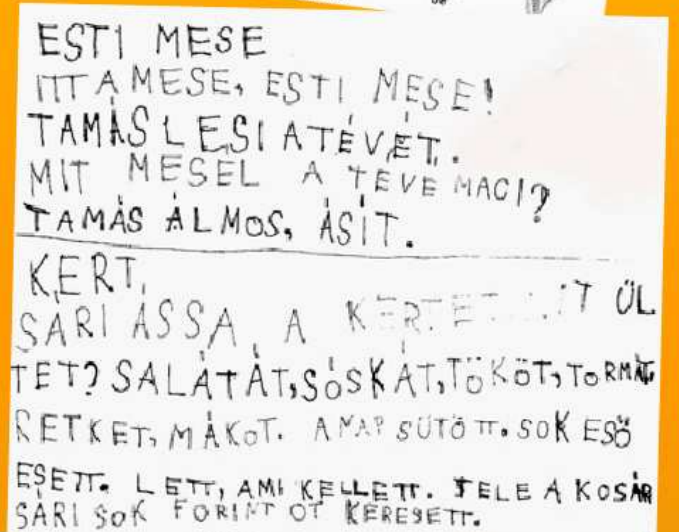 ESTI MESE
ITT A MESE, ESTI MESE!
TAMÁS LESI A TÉVÉT.
MIT MESEL A TEVE MACI?
TAMÁS ÁLMOS, ÁSÍT.
KERT.
SÁRI ÁSSA A KERTET. MIT ÜL
TET? SALÁTÁT, SÓSKÁT, TÖKÖT, TORMÁT,
RETKET, MÁKOT. A NAP SÜTÖTT. SOK ESŐ
ESETT. LETT, AMI KELLETT. TELE A KOSÁR
SÁRI SOK FORINT OT KERESETT.